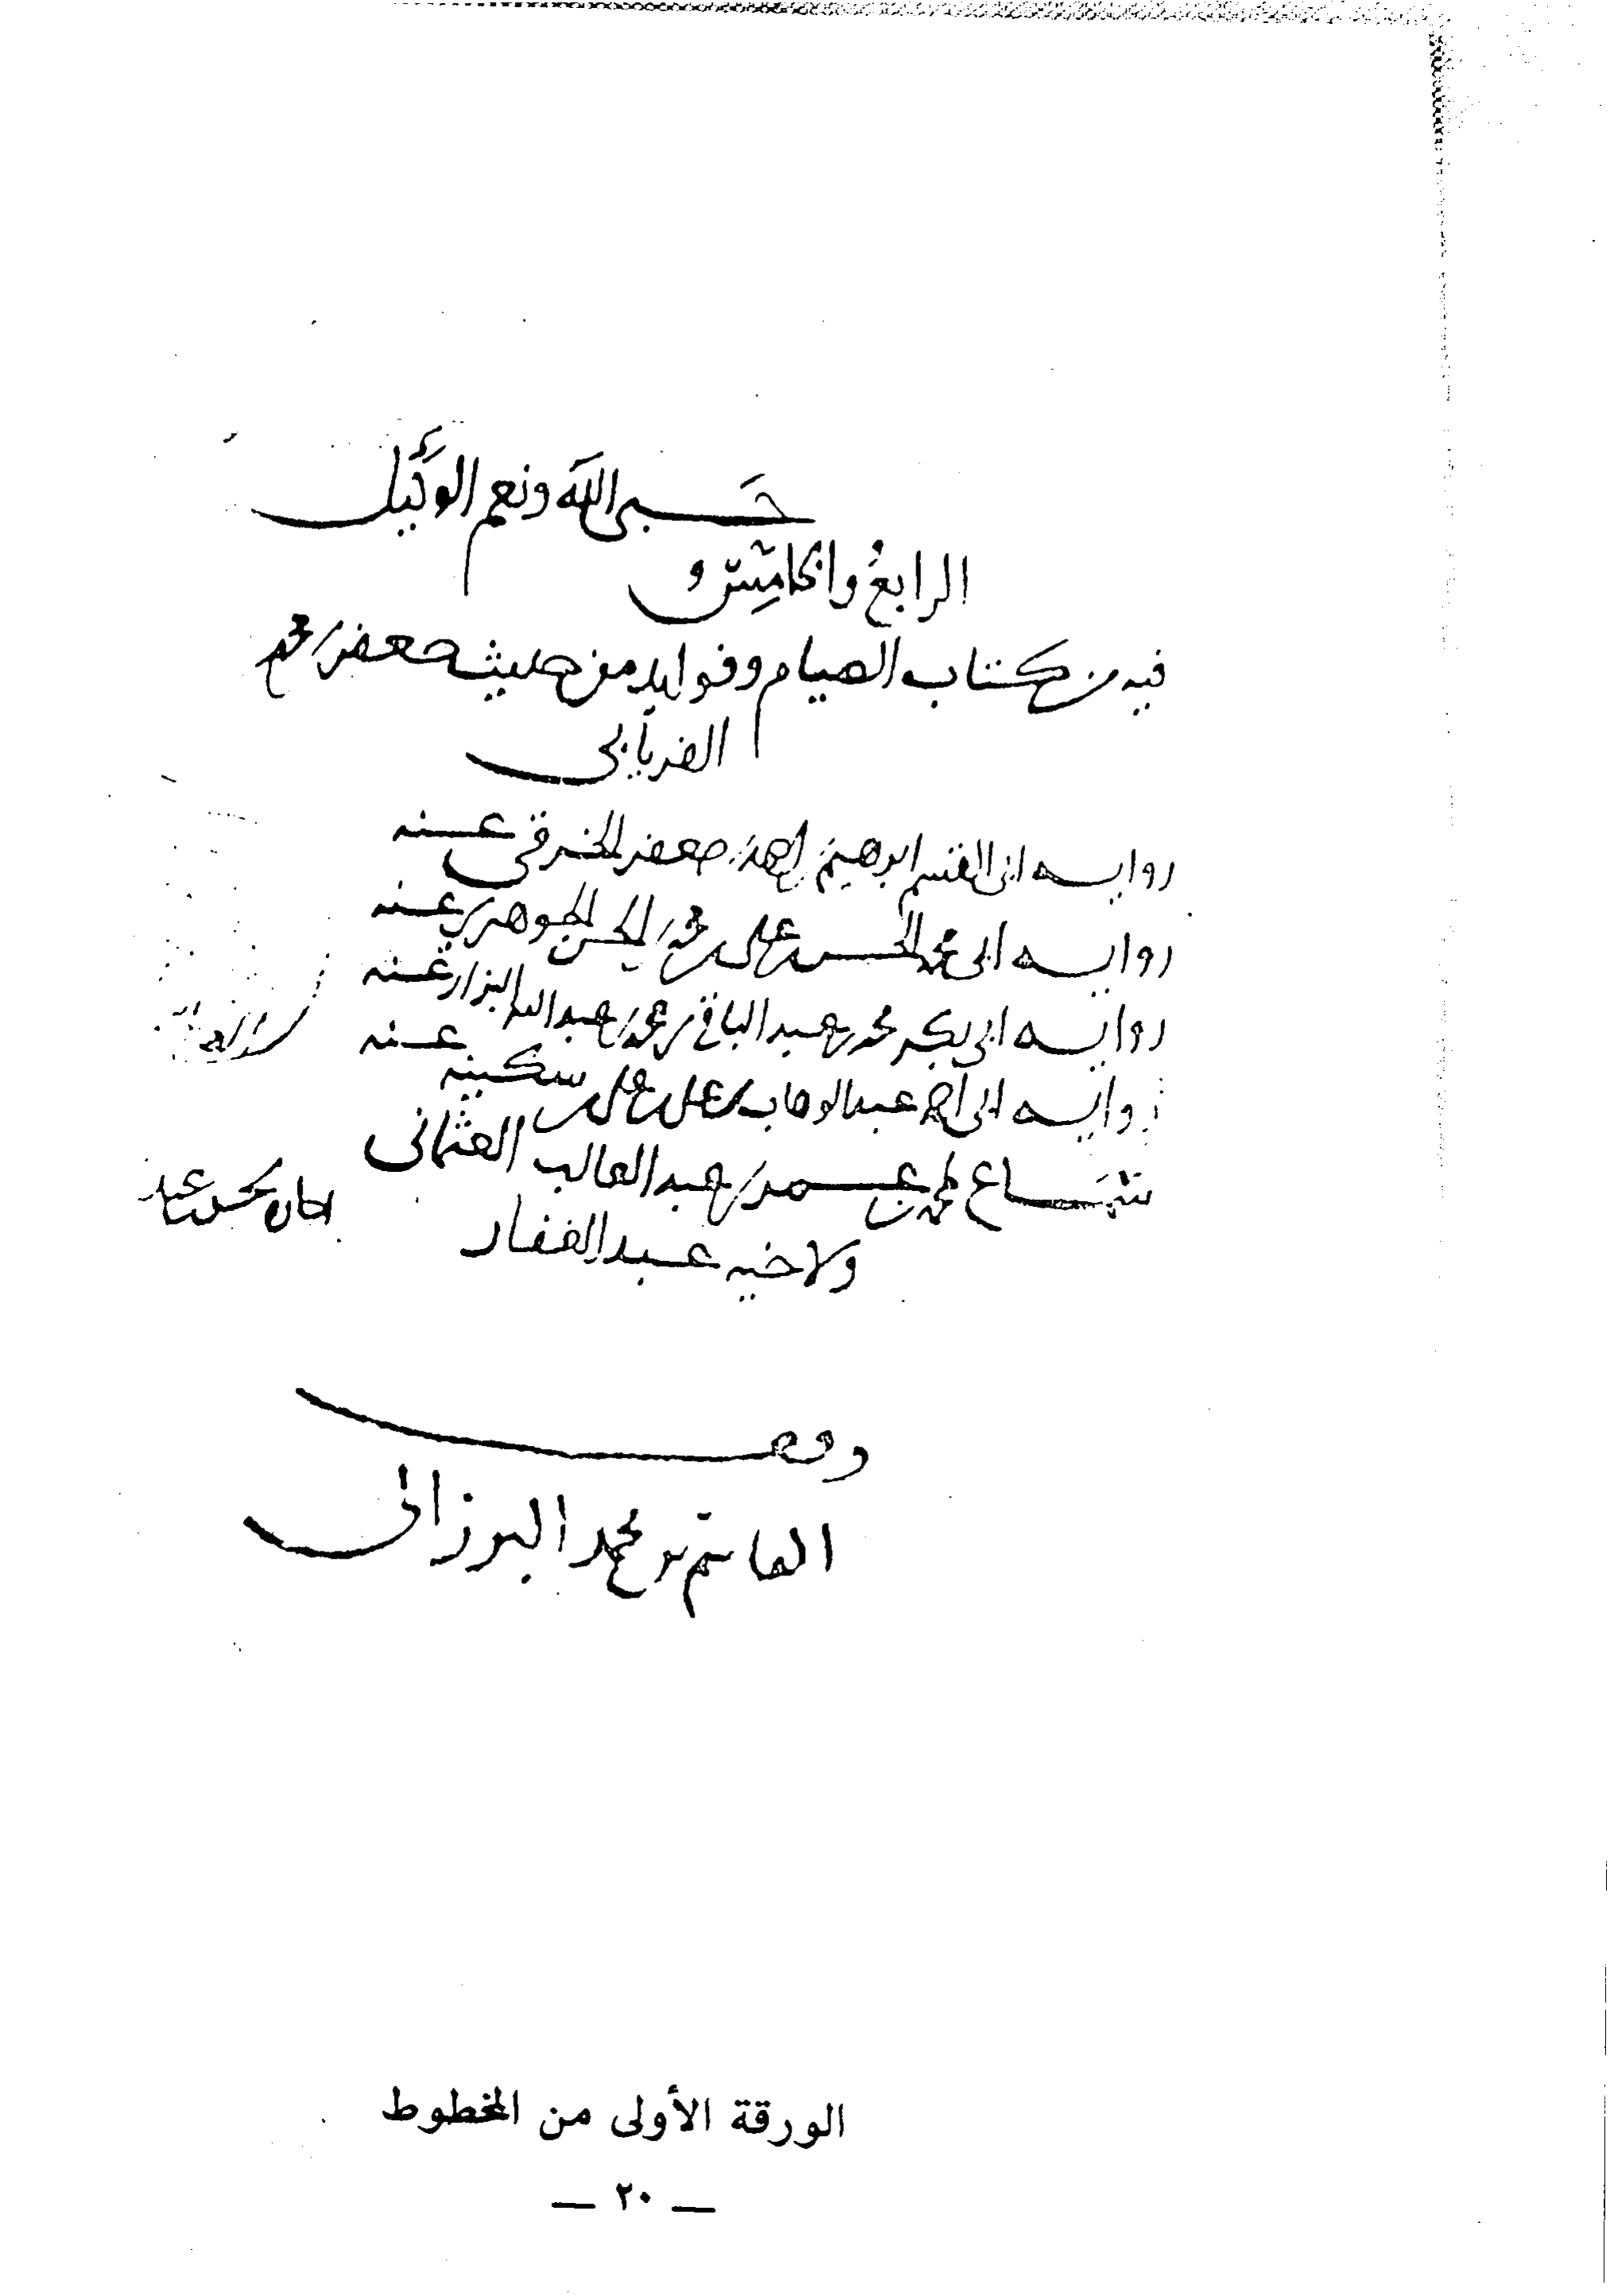 حسبي الله ونعم الوكيل
الرابع والخامس و
فيه من كتاب الصيام وفوايد من حديث جعفر بن محمد
الفريابي
روايه ابي القسم ابرهيم بن احمد بن جعفر الخرقي عنه
روايه ابي محمد الحسن بن علي بن محمد بن الحسن الجوهري عنه
روايه ابي بكر محمد بن عبد الباقي بن محمد بن عبد الله البزار عنه
روايه ابي احمد عبد الوهاب بن علي بن علي بن سكينه عنه
سماع لمحمد بن عمر بن عبد الغالب العثماني
ولاخيه عبد الغفار
وقف
القاسم بن محمد البرزالي
الورقة الأولى من المخطوط
— ٢٠ —